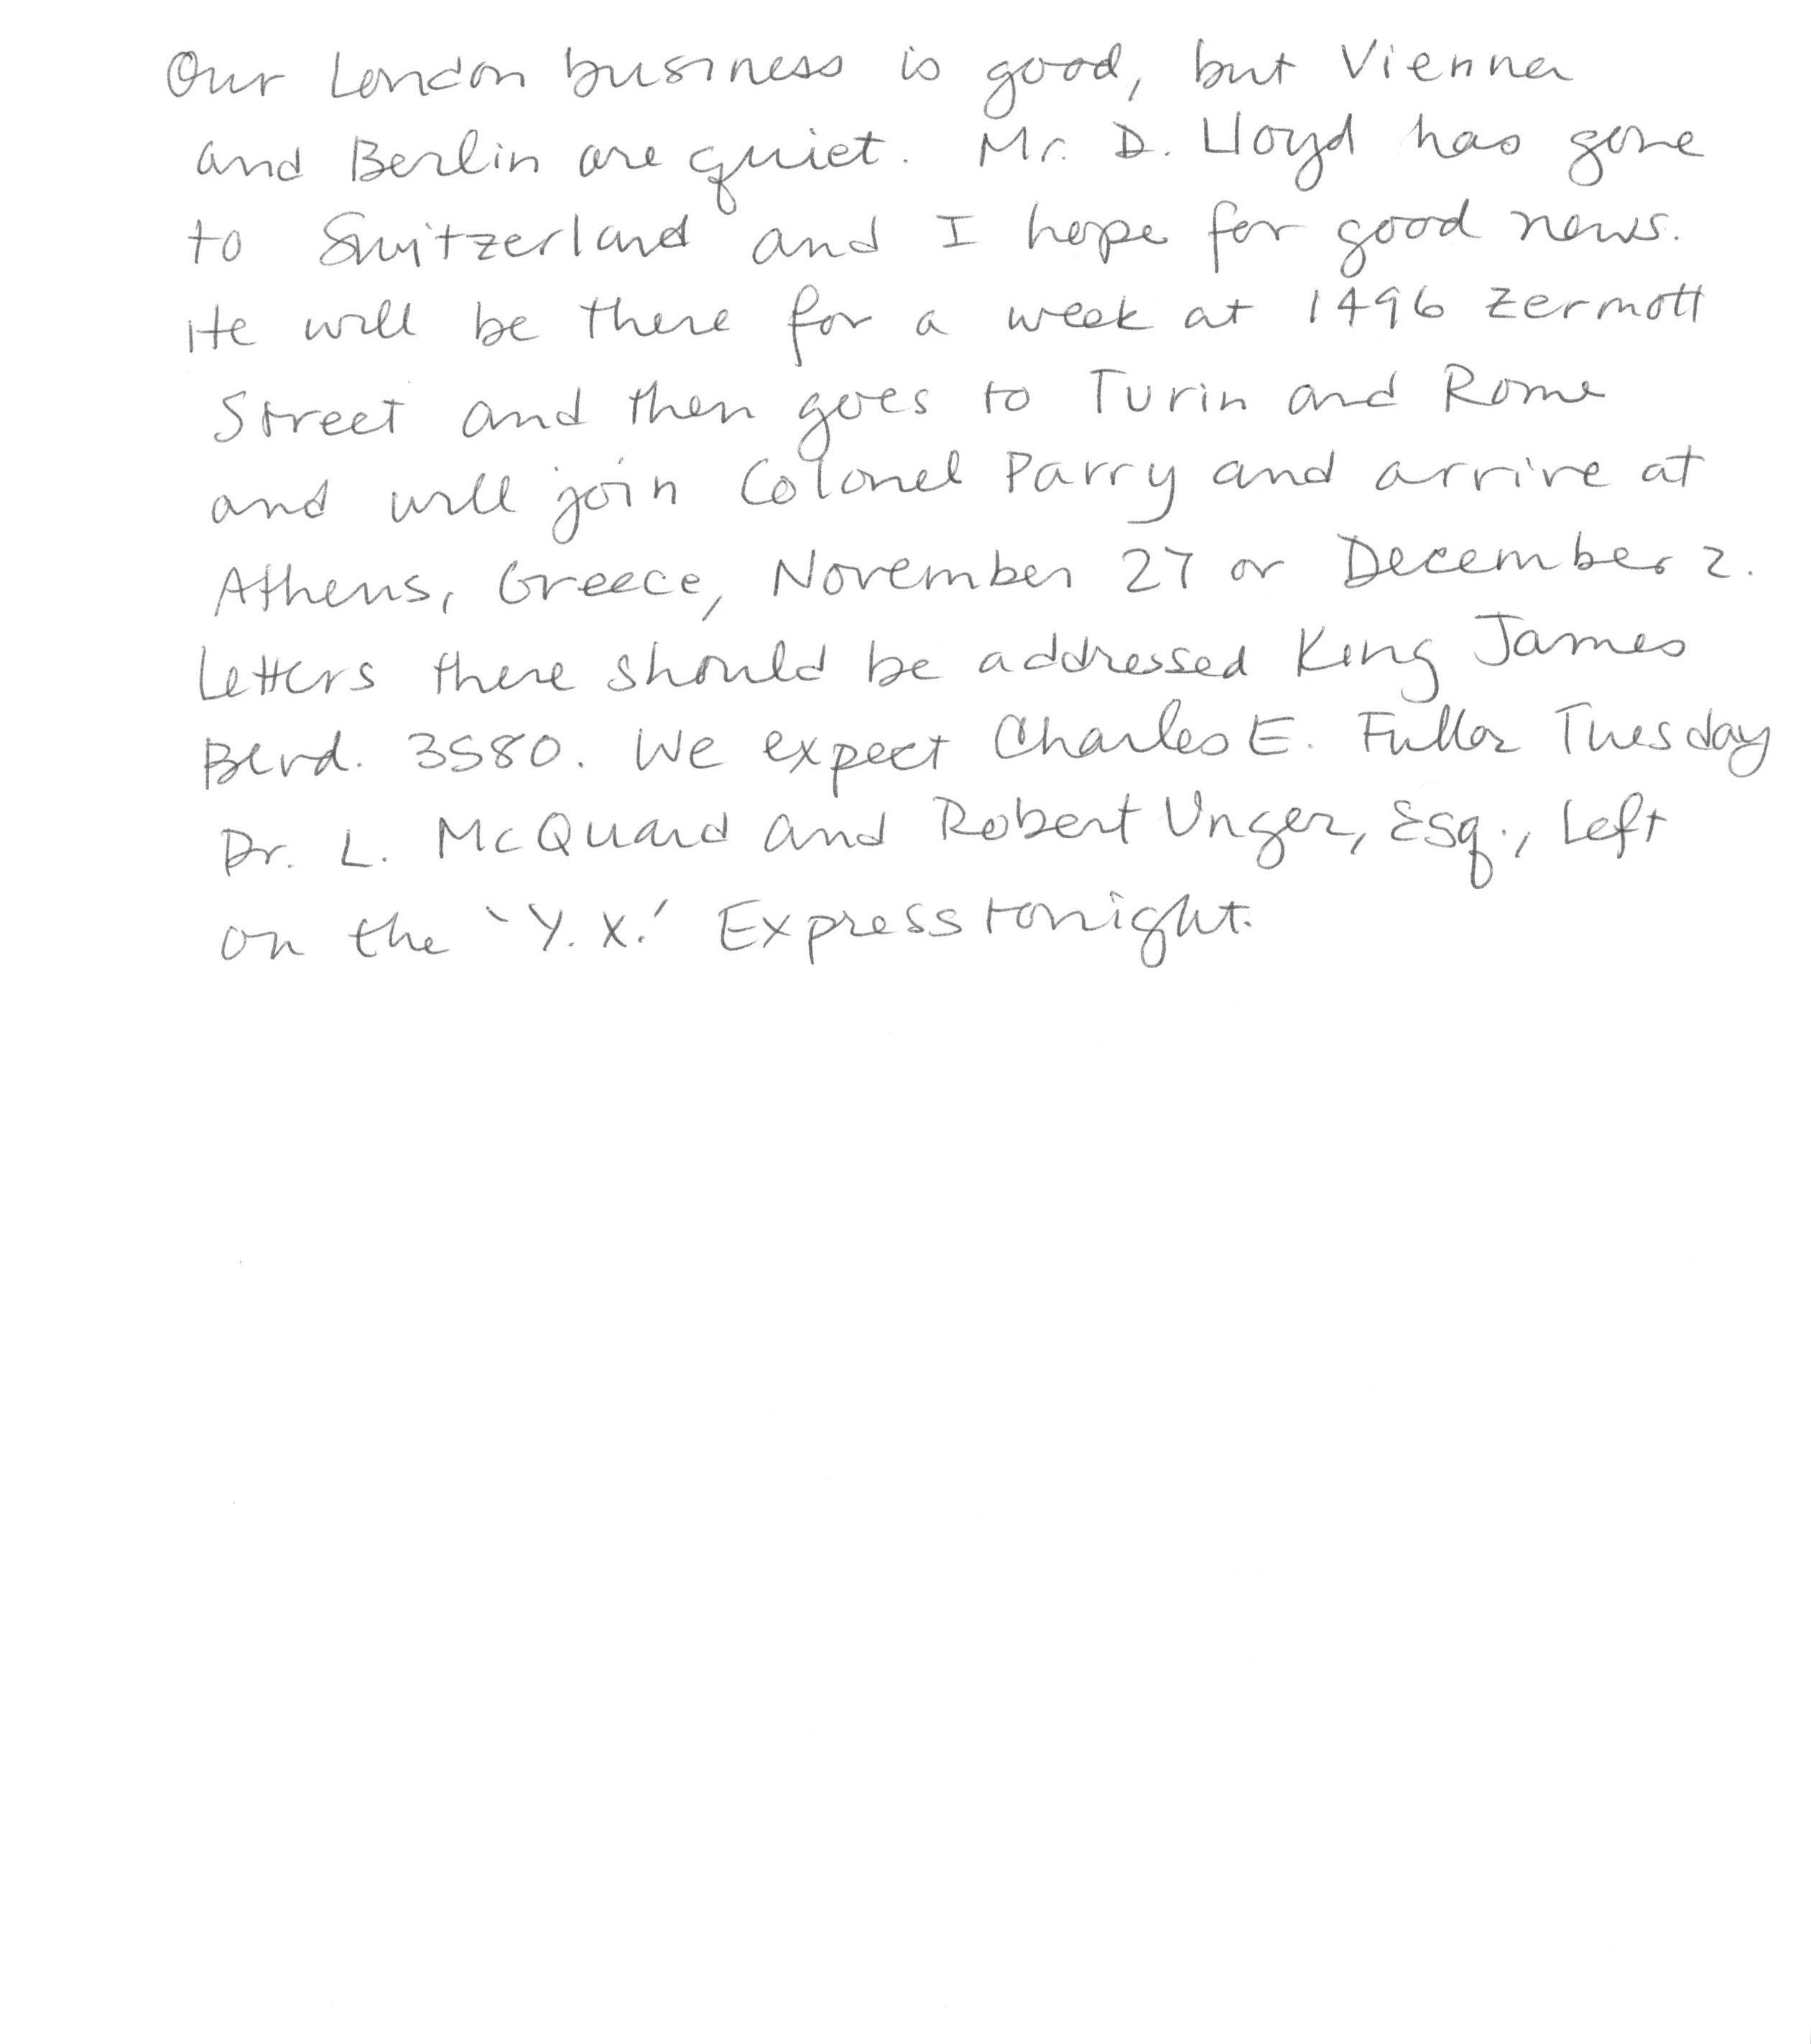 Our London business is good, but Vienna
and Berlin are quiet. Mr. D. Lloyd has gone
to Switzerland and I hope for good news.
He will be there for a week at 1496 Zermott
Street and then goes to Turin and Rome
and will join Colonel Parry and arrive at
Athens, Greece, November 27 or December 2.
Letters there should be addressed King James
Blvd. 3580. We expect Charles E. Fuller Tuesday
Dr. L. McQuaid and Robert Unger, Esq., Left
on the 'Y.X.' Express tonight.